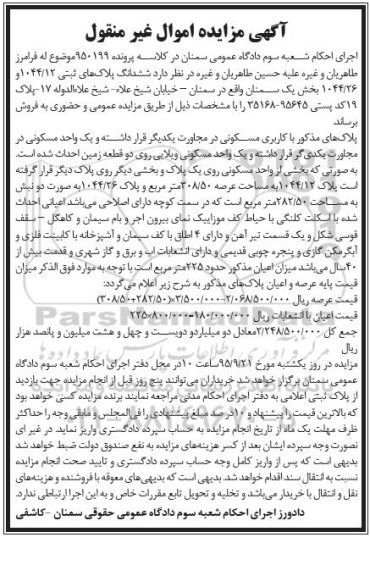 آگهی مزایده اموال غیر منقول
اجرای احکام شعبه سوم دادگاه عمومی سمنان در کلاسه پرونده ۹۵۰۱۹۹موضوع له فرامرز
طاهریان و غیره علیه حسین طاهریان و غیره در نظر دارد ششدانگ پلاک‌های ثبتی ۱۰۴۴/۱۲و
۱۰۴۴/۲۶ بخش یک سمنان واقع در سمنان – خیابان شیخ علاء– شیخ علاءالدوله ۱۷-پلاک
۱۹کد پستی ۹۵۶۴۵-۳۵۱۶۸ را با مشخصات ذیل از طریق مزایده عمومی و حضوری به فروش
برساند.
پلاک‌های مذکور با کاربری مسکونی در مجاورت یکدیگر قرار داشته و یک واحد مسکونی در
مجاورت یکدی‌گر قرار داشته و یک واحد مسکونی ویلایی روی دو قطعه زمین احداث شده است.
به صورتی که بخشی از واحد مسکونی روی یک پلاک و بخشی دیگر روی پلاک دیگر قرار گرفته
است پلاک ۱۰۴۴/۱۲به مساحت عرصه ۳۰۸/۵۰متر مربع و پلاک ۱۰۴۴/۲۶به صورت دو نبش
به مساحت ۲۸۲/۵۰متر مربع است که در سمت کوچه دارای اصلاحی می‌باشد اعیانی احداث
شده با اسکلت کلنگی با حیاط کف موزاییک نمای بیرون آجر و بام سیمان و کاهگل – سقف
قوسی شکل و یک قسمت تیر آهن و دارای ۴ اطاق با کف سیمان و آشپزخانه با کابینت فلزی و
آبگرمکن گازی و پنجره چوبی قدیمی و دارای انشعابات آب و برق و گاز شهری و قدمت بیش از
۴۰سال می‌باشد میزان اعیان مذکور حدود ۲۲۵متر مربع است با توجه به موارد فوق الذکر میزان
قیمت پایه عرصه و اعیان پلاک‌های مذکور به شرح زیر اعلام می‌گردد:
قیمت عرصه ریال ۲/۰۶۸/۵۰۰/۰۰۰=۳/۵۰۰/۰۰۰×(۲۸۲/۵۰+۳۰۸/۵۰)
قیمت اعیان با انشعابات ریال ۱۸۰/۰۰۰/۰۰۰=۸۰۰/۰۰۰×۲۲۵
جمع کل ۲/۲۴۸/۵۰۰/۰۰۰معادل دو میلیاردو دویست و چهل و هشت میلیون و پانصد هزار
ریال
مزایده در روز یکشنبه مورخ ۹۵/۹/۲۱ساعت ۱۰در محل دفتر اجرای احکام شعبه سوم دادگاه
عمومی سمنان برگزار خواهد شد خریداران می‌توانند پنج روز قبل از انجام مزایده جهت بازدید
از پلاک ثبتی اعلامی به دفتر اجرای احکام مدنی مراجعه نمایند برنده مزایده کسی خواهد بود
که بالاترین قیمت را پیشنهاد و ۱۰درصد مبلغ پیشنهادی را فی‌المجلس و مابقی وجه را حداکثر
ظرف مهلت یک ماه از تاریخ انجام مزایده به حساب سپرده دادگستری واریز نماید. در غیر ای
نصورت وجه سپرده ایشان بعد از کسر هزینه‌های مزایده به نفع صندوق دولت ضبط خواهد شد
بدیهی است که پس از واریز کامل وجه حساب سپرده دادگستری و تایید صحت انجام مزایده
نسبت به انتقال سند اقدام خواهد شد. بدیهی است که بدیهی‌های معوقه با فروشنده و هزینه‌های
نقل و انتقال با خریدار می‌باشد و تخلیه و تحویل تابع مقررات خاص و به این اجرا ارتباطی ندارد.
دادورز اجرای احکام شعبه سوم دادگاه عمومی حقوقی سمنان -کاشفی